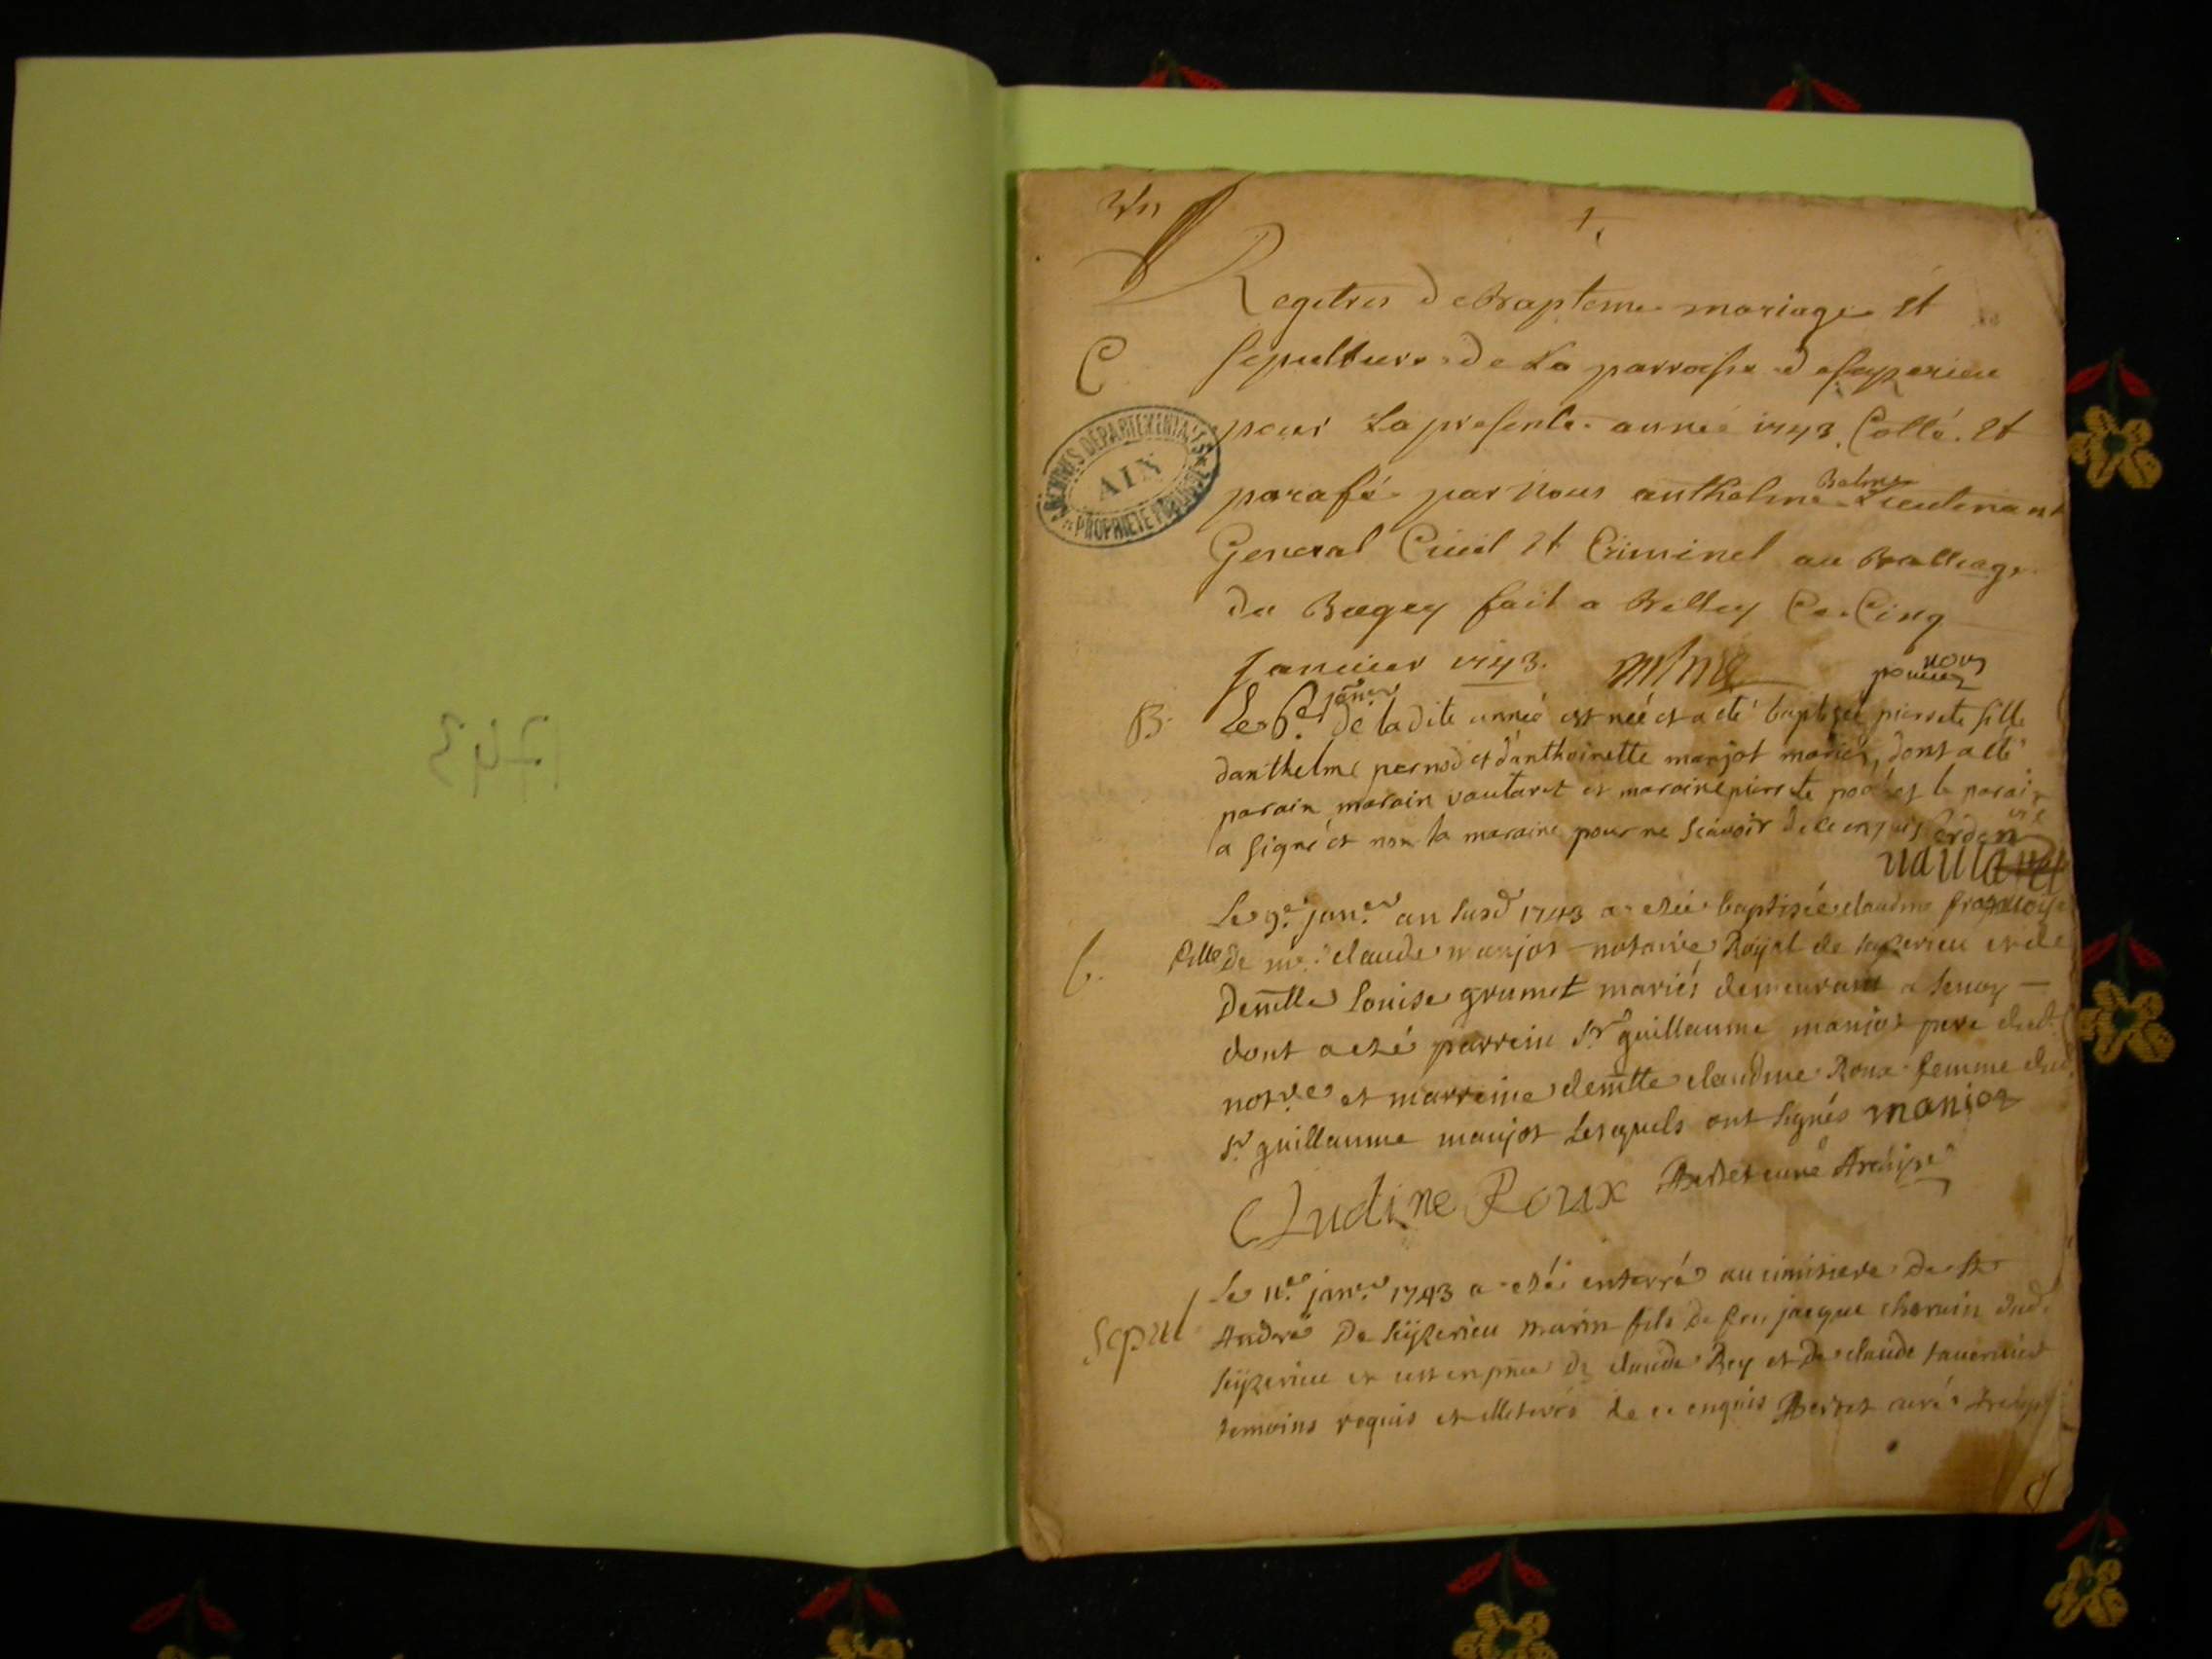 1743
1
Regitres de Bapteme mariage et
C
sepulture de La parroisse de seyzerieu
pour La presente année 1743. Cotté. et
ARCHIVES DEPARTEMENTALES
AIN
PROPRIETE PUBLIQUE
parafé par Nous anthelme Balme Lieutenant
General Civil et Criminel au Balliage
du Bugey fait a Belley Ce Cinq
Janvier 1743.
B.
Le 6e janer de la dite année est neé et a eté baptiseé pierrete fille
danthelme pernod et d'anthoinette manjot mariés, dont a eté
parain marain vautaret et maraine pierrete le parain
a signé et non la maraine pour ne scavoir de ce enquis
vautaret
Le 9e janer an susd 1743 a eté baptisée claudine françoise
b.
fille de me claude manjot notaire Royal de seyzerieu et de
demlle Louise grumet mariés demeurant a
dont a eté parrein Sr guillaume manjot pere dud.
notre et marreine demlle claudine Roux femme dud.
Sr guillaume manjot Lesquels ont signés manjot
Cludine Roux curé Archip
Le 11e janer 1743 a eté enterré au cimitiere de St
Sepul
André De seyzerieu marin fils de feu jacque dud.
seyzerieu et ce en pnce de claude Rey et de claude tavernier
temoins requis et illeterés de ce enquis curé Archip